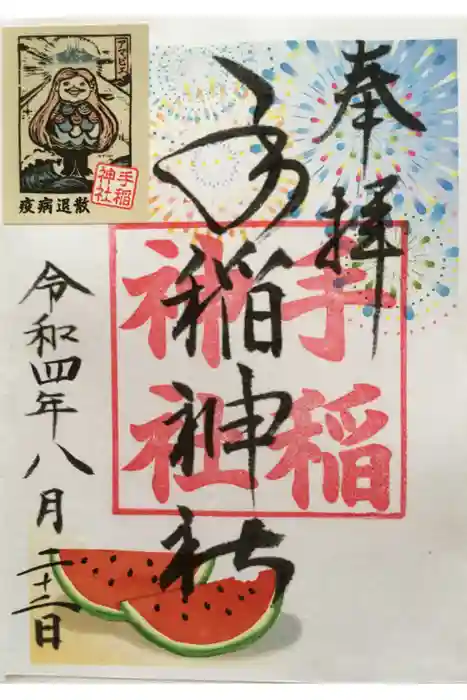 奉拝
手稲神社
手稲
神社
令和四年八月二十二日
アマビエ
手稲
神社
疫病退散